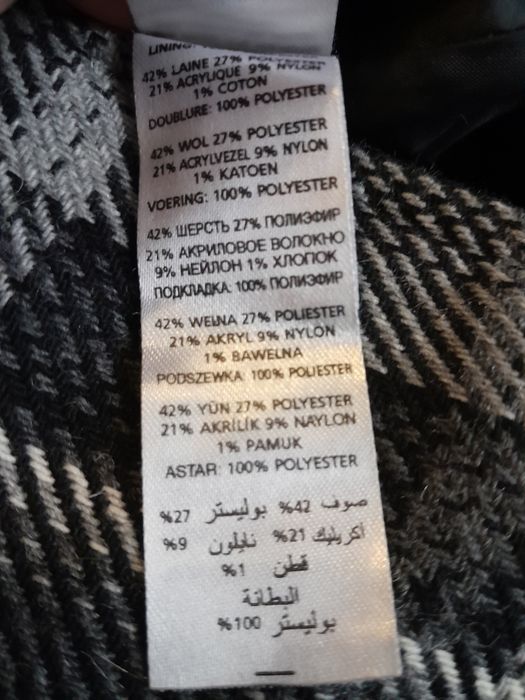 LINING:
42% LAINE 27% POLYESTER
21% ACRYLIQUE 9% NYLON
1% COTON
DOUBLURE: 100% POLYESTER
42% WOL 27% POLYESTER
21% ACRYLVEZEL 9% NYLON
1% KATOEN
VOERING: 100% POLYESTER
42% ШЕРСТЬ 27% ПОЛИЭФИР
21% АКРИЛОВОЕ ВОЛОКНО
9% НЕЙЛОН 1% ХЛОПОК
ПОДКЛАДКА: 100% ПОЛИЭФИР
42% WEŁNA 27% POLIESTER
21% AKRYL 9% NYLON
1% BAWEŁNA
PODSZEWKA: 100% POLIESTER
42% YÜN 27% POLYESTER
21% AKRİLİK 9% NAYLON
1% PAMUK
ASTAR: 100% POLYESTER
صوف 42% بوليستر 27%
أكريليك 21% نايلون 9%
قطن 1%
البطانة
بوليستر 100%